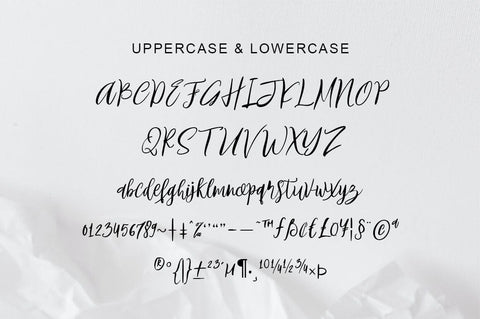 UPPERCASE & LOWERCASE
ABCDEFGHIJKLMNOP
QRSTUVWXYZ
abcdefghijklmnopqrstuvwxyz
0123456789~†‡ˆ‰‘’“”–—˜™ƒß¢£¤¥¦§¨©ª
®°{|}±²³´µ¶·¸¹º¼½¾×Þ